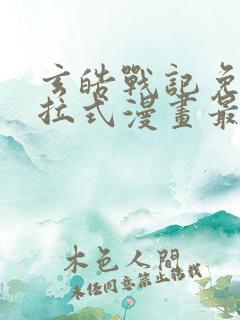 玄皓戰記免
拉式漫畫最
木色人間
未经同意禁止转载